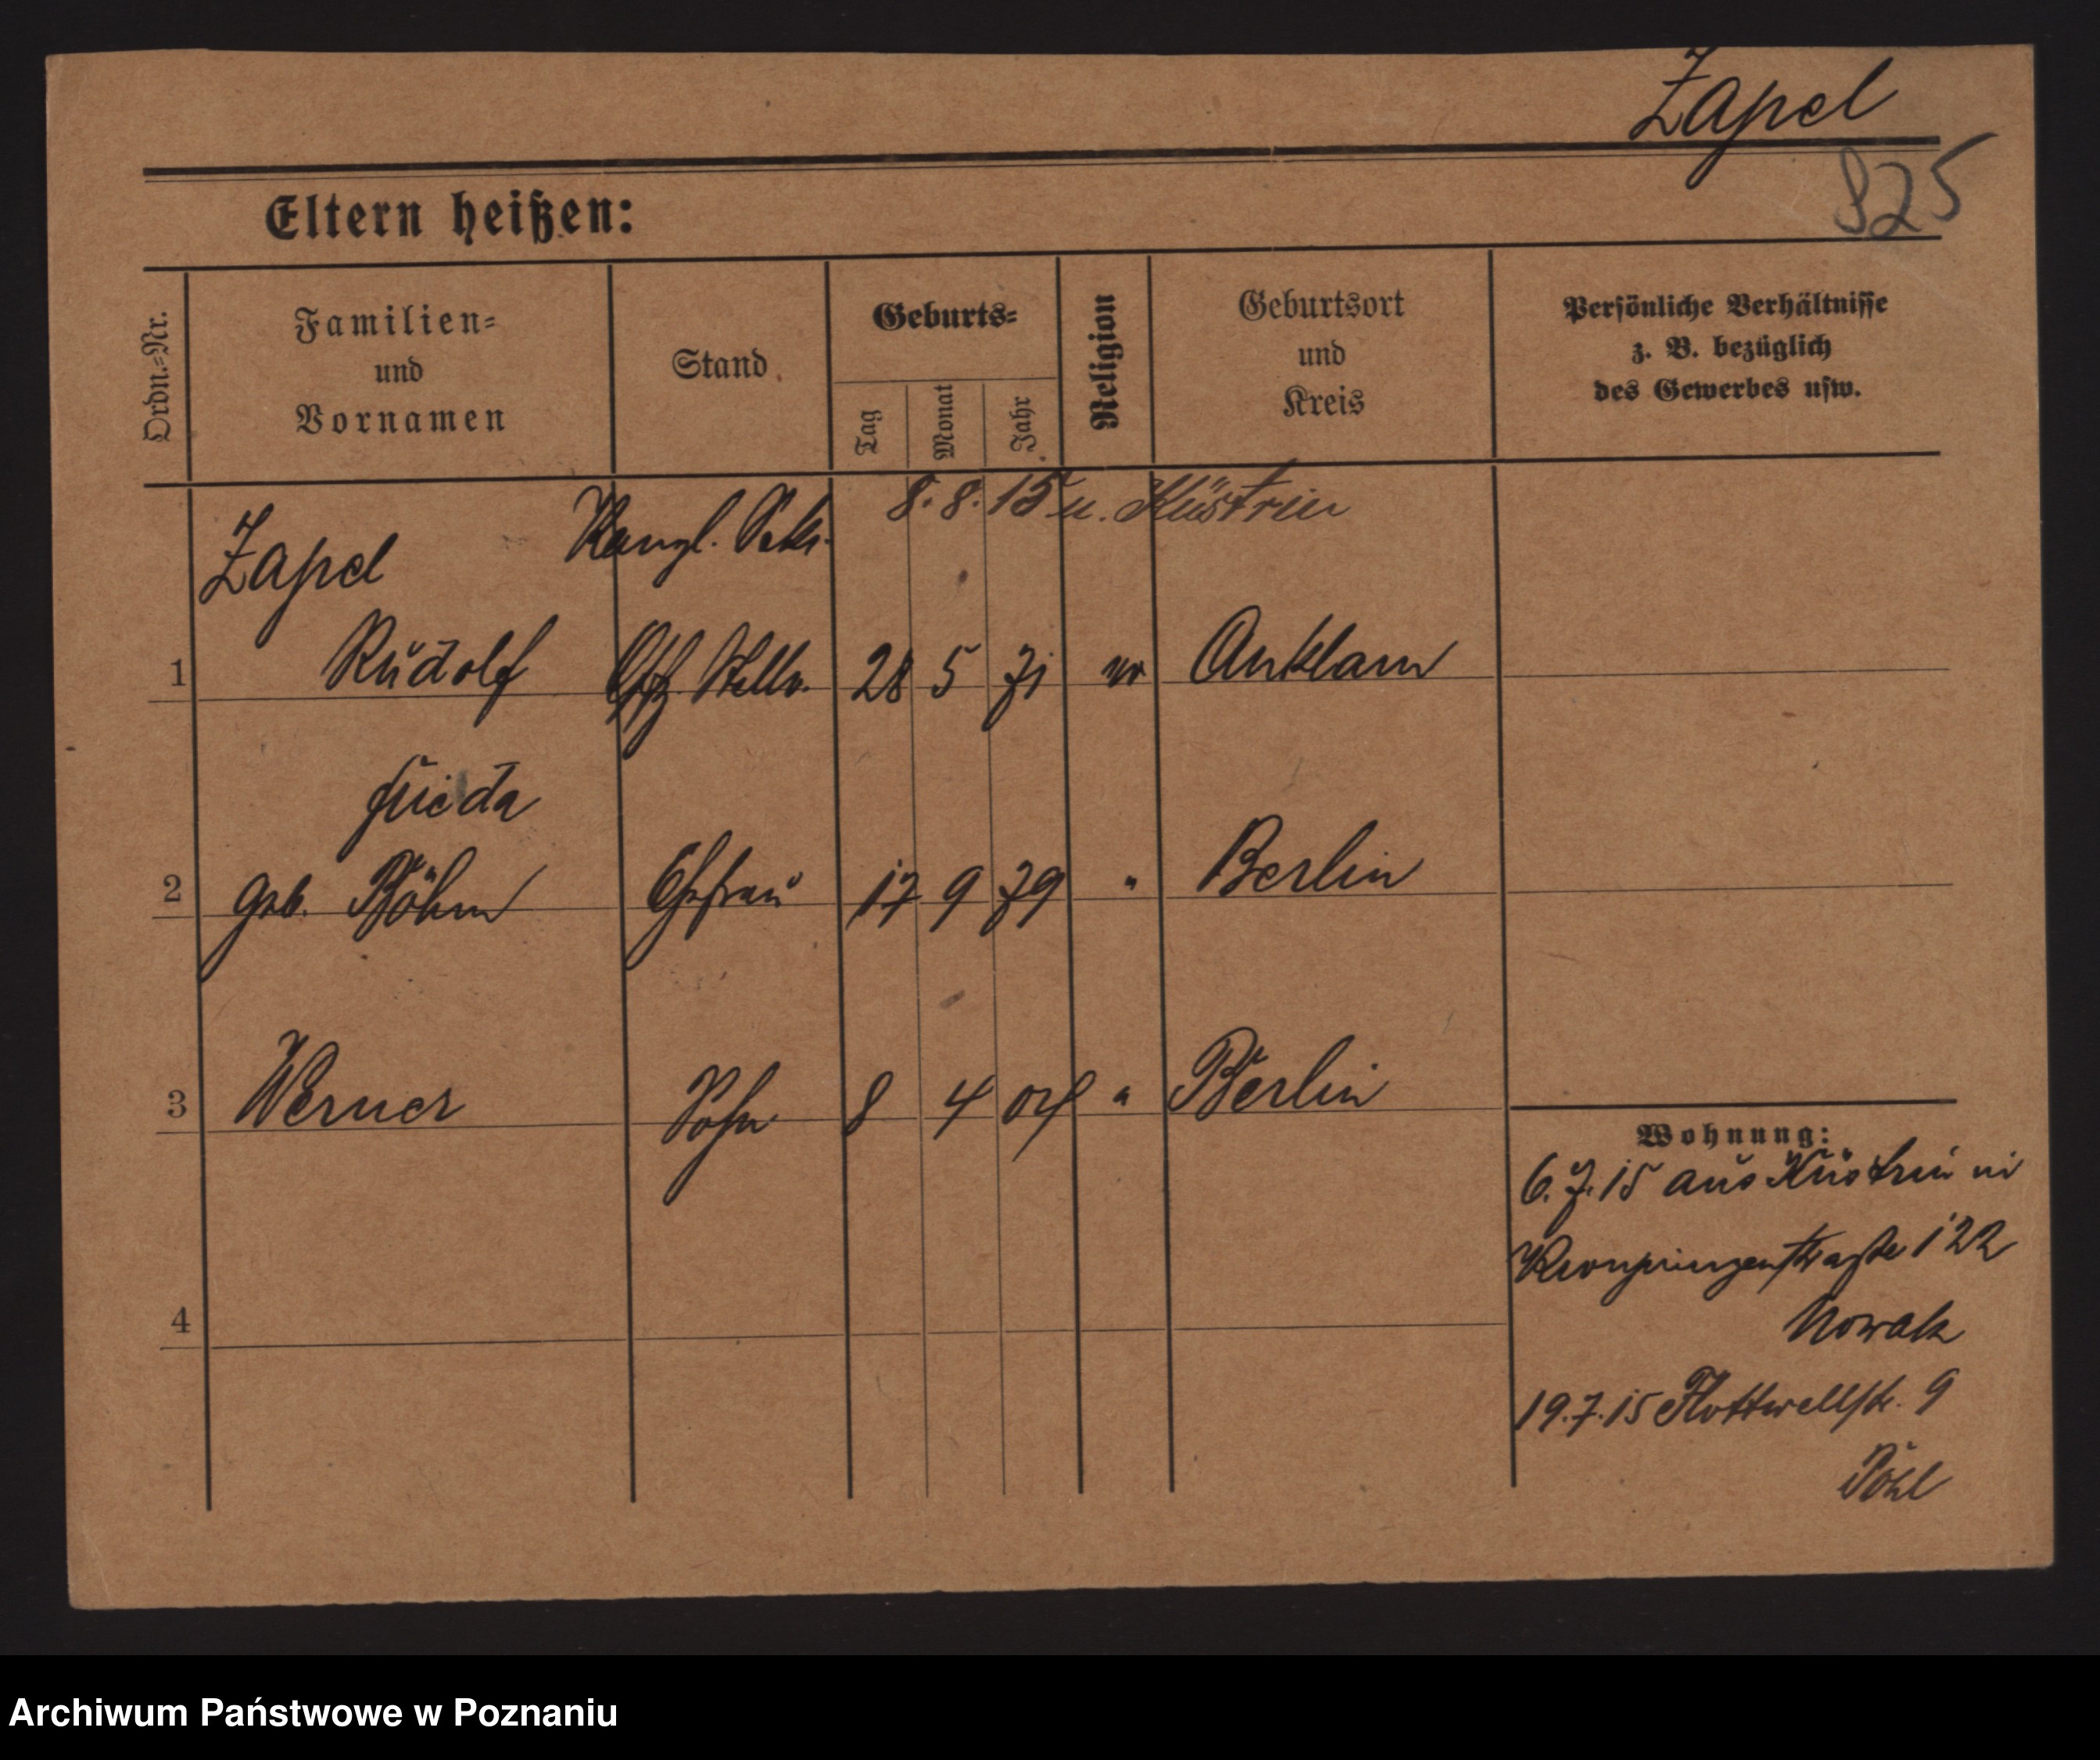 Zapel
825
Eltern heißen:
Ordn.=Nr.
Familien=
und
Vornamen
Stand
Geburts=
Tag
Monat
Jahr
Religion
Geburtsort
und
Kreis
Persönliche Verhältnisse
z. B. bezüglich
des Gewerbes usw.
8. 8. 15 n. Küstrin
Zapel Kanzl. Sekr.
1 Rudolf Offz. Stellv. 28 5 71 ev Anklam
Frieda
2 geb. Böhm Ehefrau 17 9 79 " Berlin
3 Werner Sohn 8 4 04 " Berlin
4
Wohnung:
6. 7. 15 aus Küstrin in
Kronprinzenstraße 122
Nowak
19. 7. 15 Flottwellstr. 9
Pohl
Archiwum Państwowe w Poznaniu